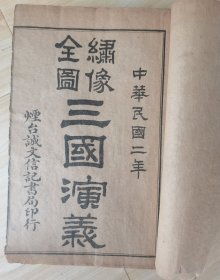 中華民國二年
繡像
全圖
三國演義
煙台誠文信記書局印行